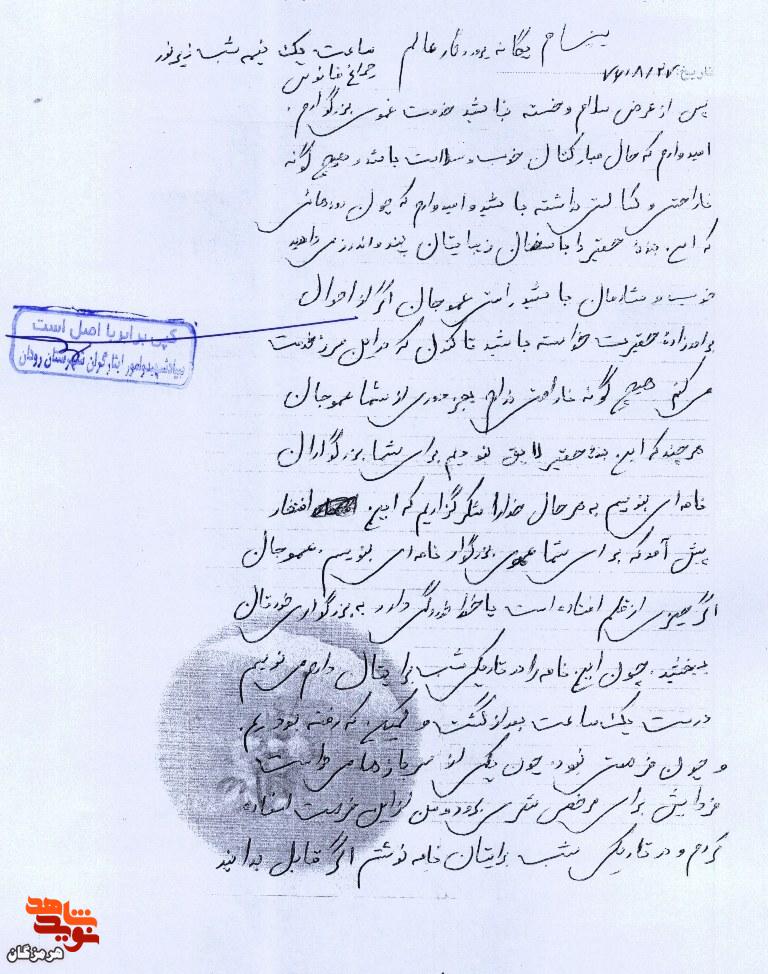 بنام یگانه پروردگار عالم
ساعت یک نیمه شب زیر نور
چراغ فانوس
تاریخ: ۷۶/۸/۲۷
پس از عرض سلام و خسته نباشید خدمت عموی بزرگوارم.
امیدوارم که حال مبارکتان خوب و سلامت باشد و هیچ گونه
ناراحتی و کسالتی نداشته باشید و امیدوارم که چون روزهائی
که این بنده حقیر را با سخنان زیبایتان پند و اندرز می دادید
خوب و شادمان باشید راستی عموجان اگر از احوال
برادرزاده حقیرت خواسته باشید تا کنون که در این مرز خدمت
می کنم هیچ گونه ناراحتی ندارم بجز دوری از شما عموجان
هر چند که این بنده حقیر لایق نبودم برای شما بزرگواران
نامه ای بنویسم به هر حال خدا را شکر گزاریم که این افتخار
پیش آمد که برای شما عموی بزرگوار نامه ای بنویسم. عموجان
اگر چیزی از قلم افتاده است یا خط خوردگی دارد به بزرگواری خودتان
ببخشید. چون این نامه را در تاریکی شب برایتان دارم می نویسم
درست یک ساعت بعد از گشت و کمین که رفته بودیم.
و چون فرصتی نبود چون یکی از سربازها می خواست
فردایش برای مرخصی شهری برود و من از این فرصت استفاده
کردم و در تاریکی شب برایتان نامه نوشتم اگر قابل بدانید
کپی برابر با اصل است
بنیاد شهید و امور ایثارگران شهرستان رودان
نوید شاهد
هرمزگان